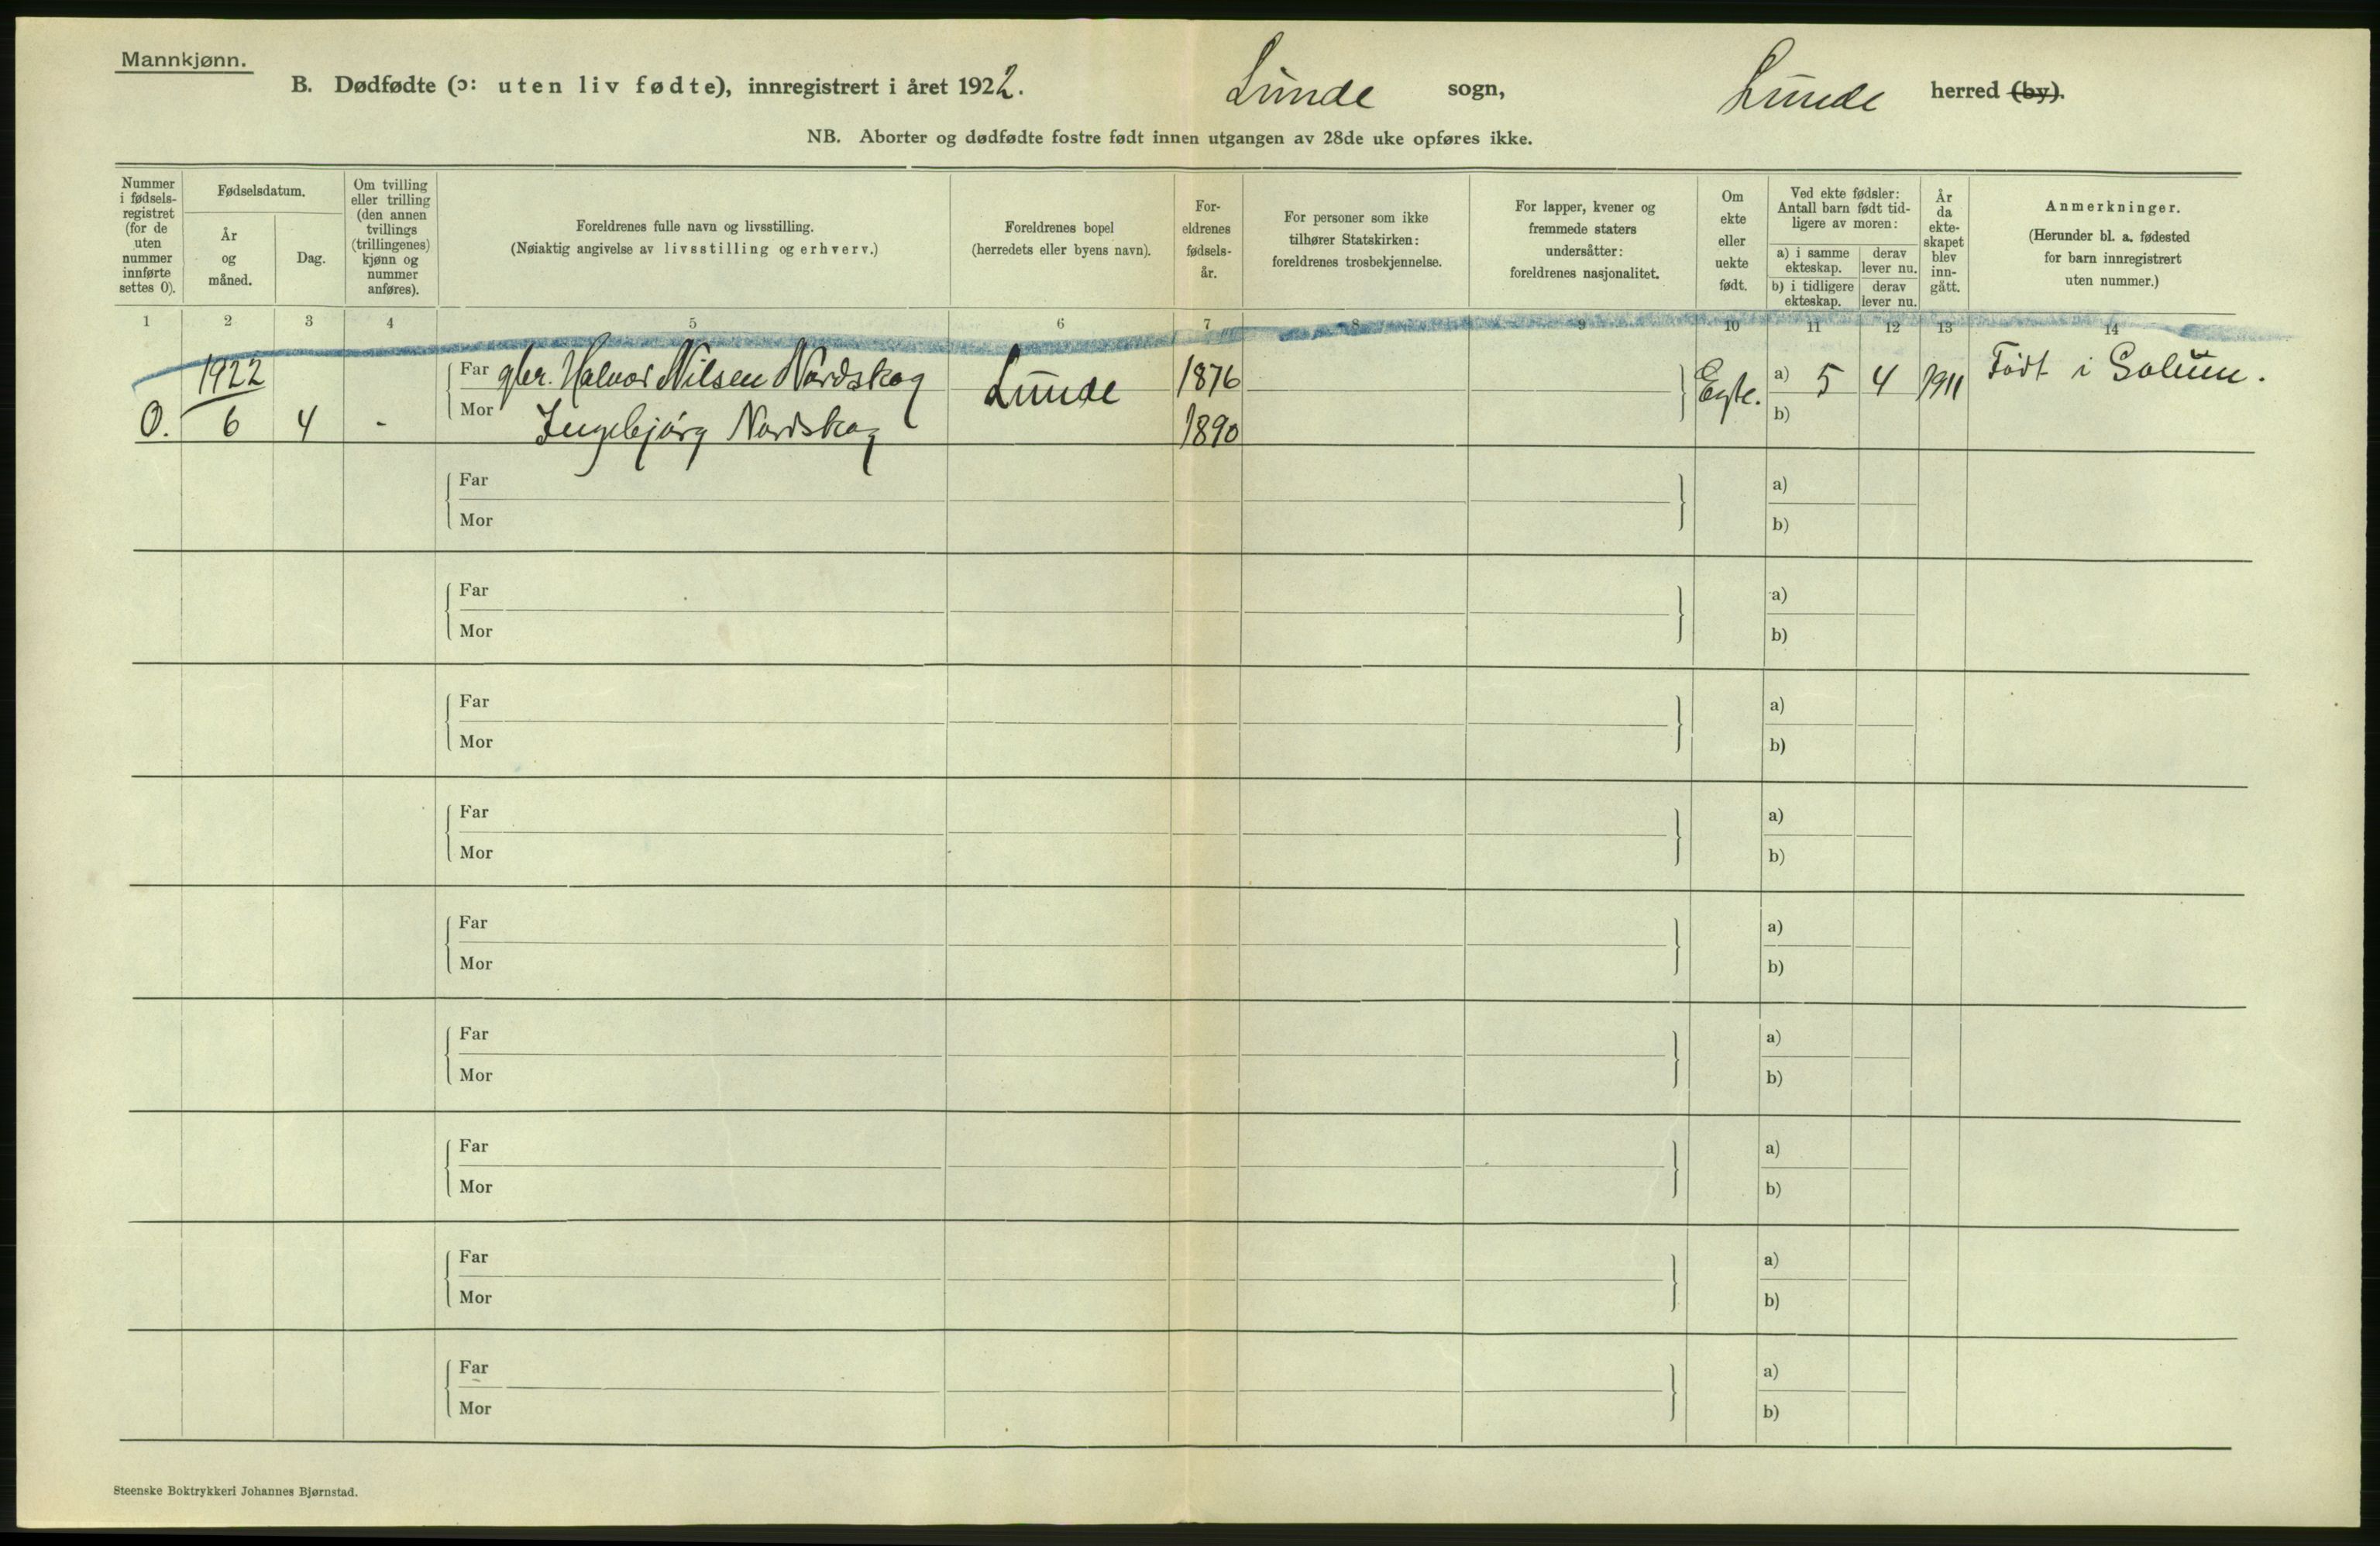 Mannkjønn.
B. Dødfødte (ɔ: uten liv fødte), innregistrert i året 1922. Lunde sogn, Lunde herred (by).
NB. Aborter og dødfødte fostre født innen utgangen av 28de uke opføres ikke.
Nummer i fødsels-registret (for de uten nummer innførte settes 0).
Fødselsdatum.
År og måned.
Dag.
Om tvilling eller trilling (den annen tvillings (trillingenes) kjønn og nummer anføres).
Foreldrenes fulle navn og livsstilling.
(Nøiaktig angivelse av livsstilling og erhverv.)
Foreldrenes bopel
(herredets eller byens navn).
For-eldrenes fødsels-år.
For personer som ikke tilhører Statskirken: foreldrenes trosbekjennelse.
For lapper, kvener og fremmede staters undersåtter: foreldrenes nasjonalitet.
Om ekte eller uekte født.
Ved ekte fødsler: Antall barn født tid-ligere av moren:
a) i samme ekteskap. derav lever nu.
b) i tidligere ekteskap. derav lever nu.
År da ekte-skapet blev inn-gått.
Anmerkninger.
(Herunder bl. a. fødested for barn innregistrert uten nummer.)
1 2 3 4 5 6 7 8 9 10 11 12 13 14
1922 Far gbr. Halvor Nilsen Nordskog Lunde 1876 Egte. a) 5 4 1911 Født i Solum.
0. 6 4 - Mor Ingebjørg Nordskog 1890 b)
Far a)
Mor b)
Far a)
Mor b)
Far a)
Mor b)
Far a)
Mor b)
Far a)
Mor b)
Far a)
Mor b)
Far a)
Mor b)
Far a)
Mor b)
Far a)
Mor b)
Steenske Boktrykkeri Johannes Bjørnstad.